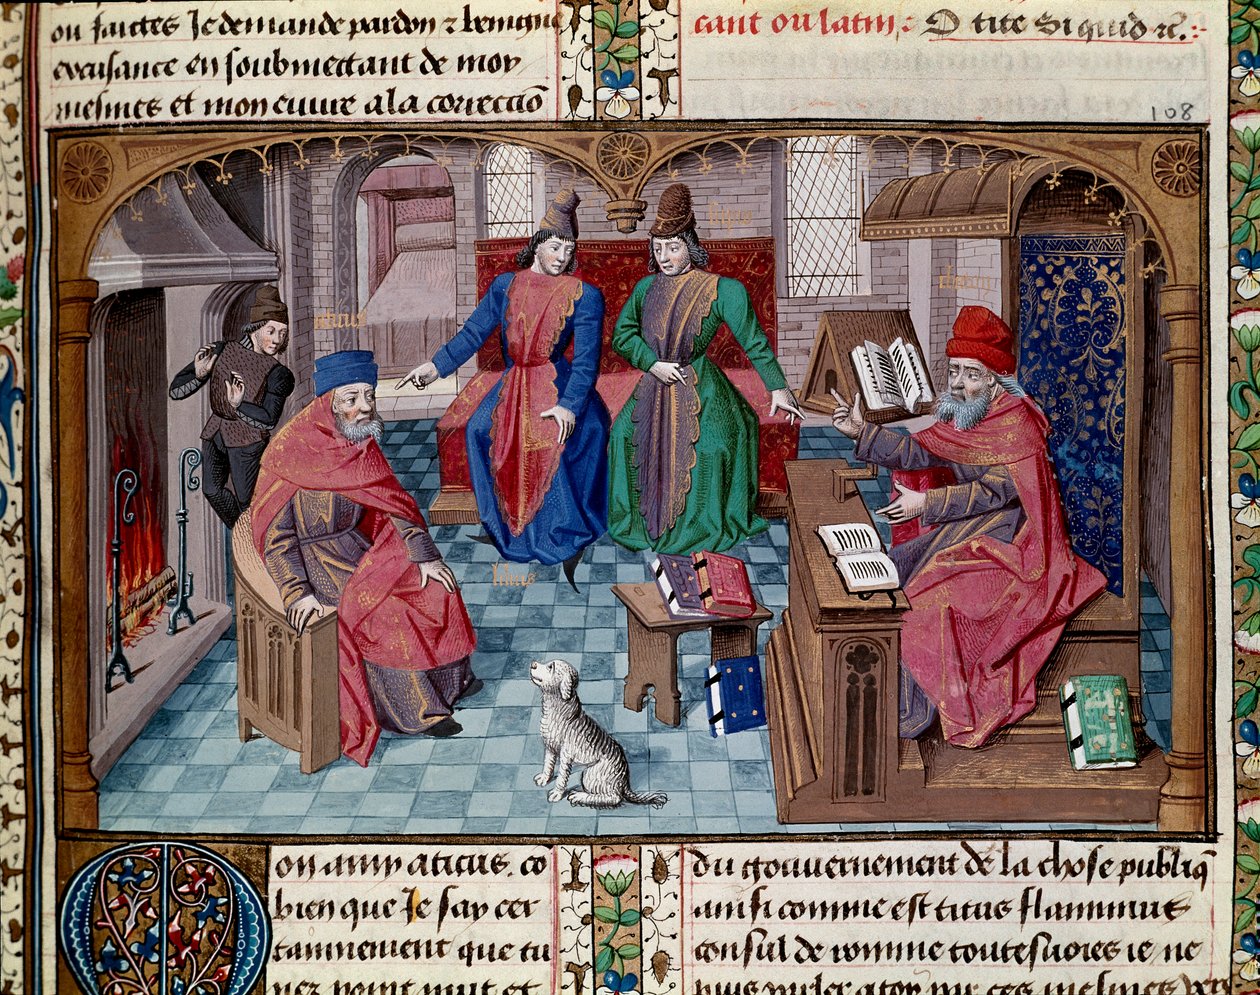 ou faictes Je demande pardon & benigne
excusance en soubmectant de moy
mesmes et mon euure a la correctiō
cant ou latin: O tite Si quid &c.:
108
lelius
on amy aticus. co
bien que Je say cer
tainnement que tu
du gouuernement de la chose publiq̄
ainsi comme est titus flaminius
consul de romme toutesuoies ie ne